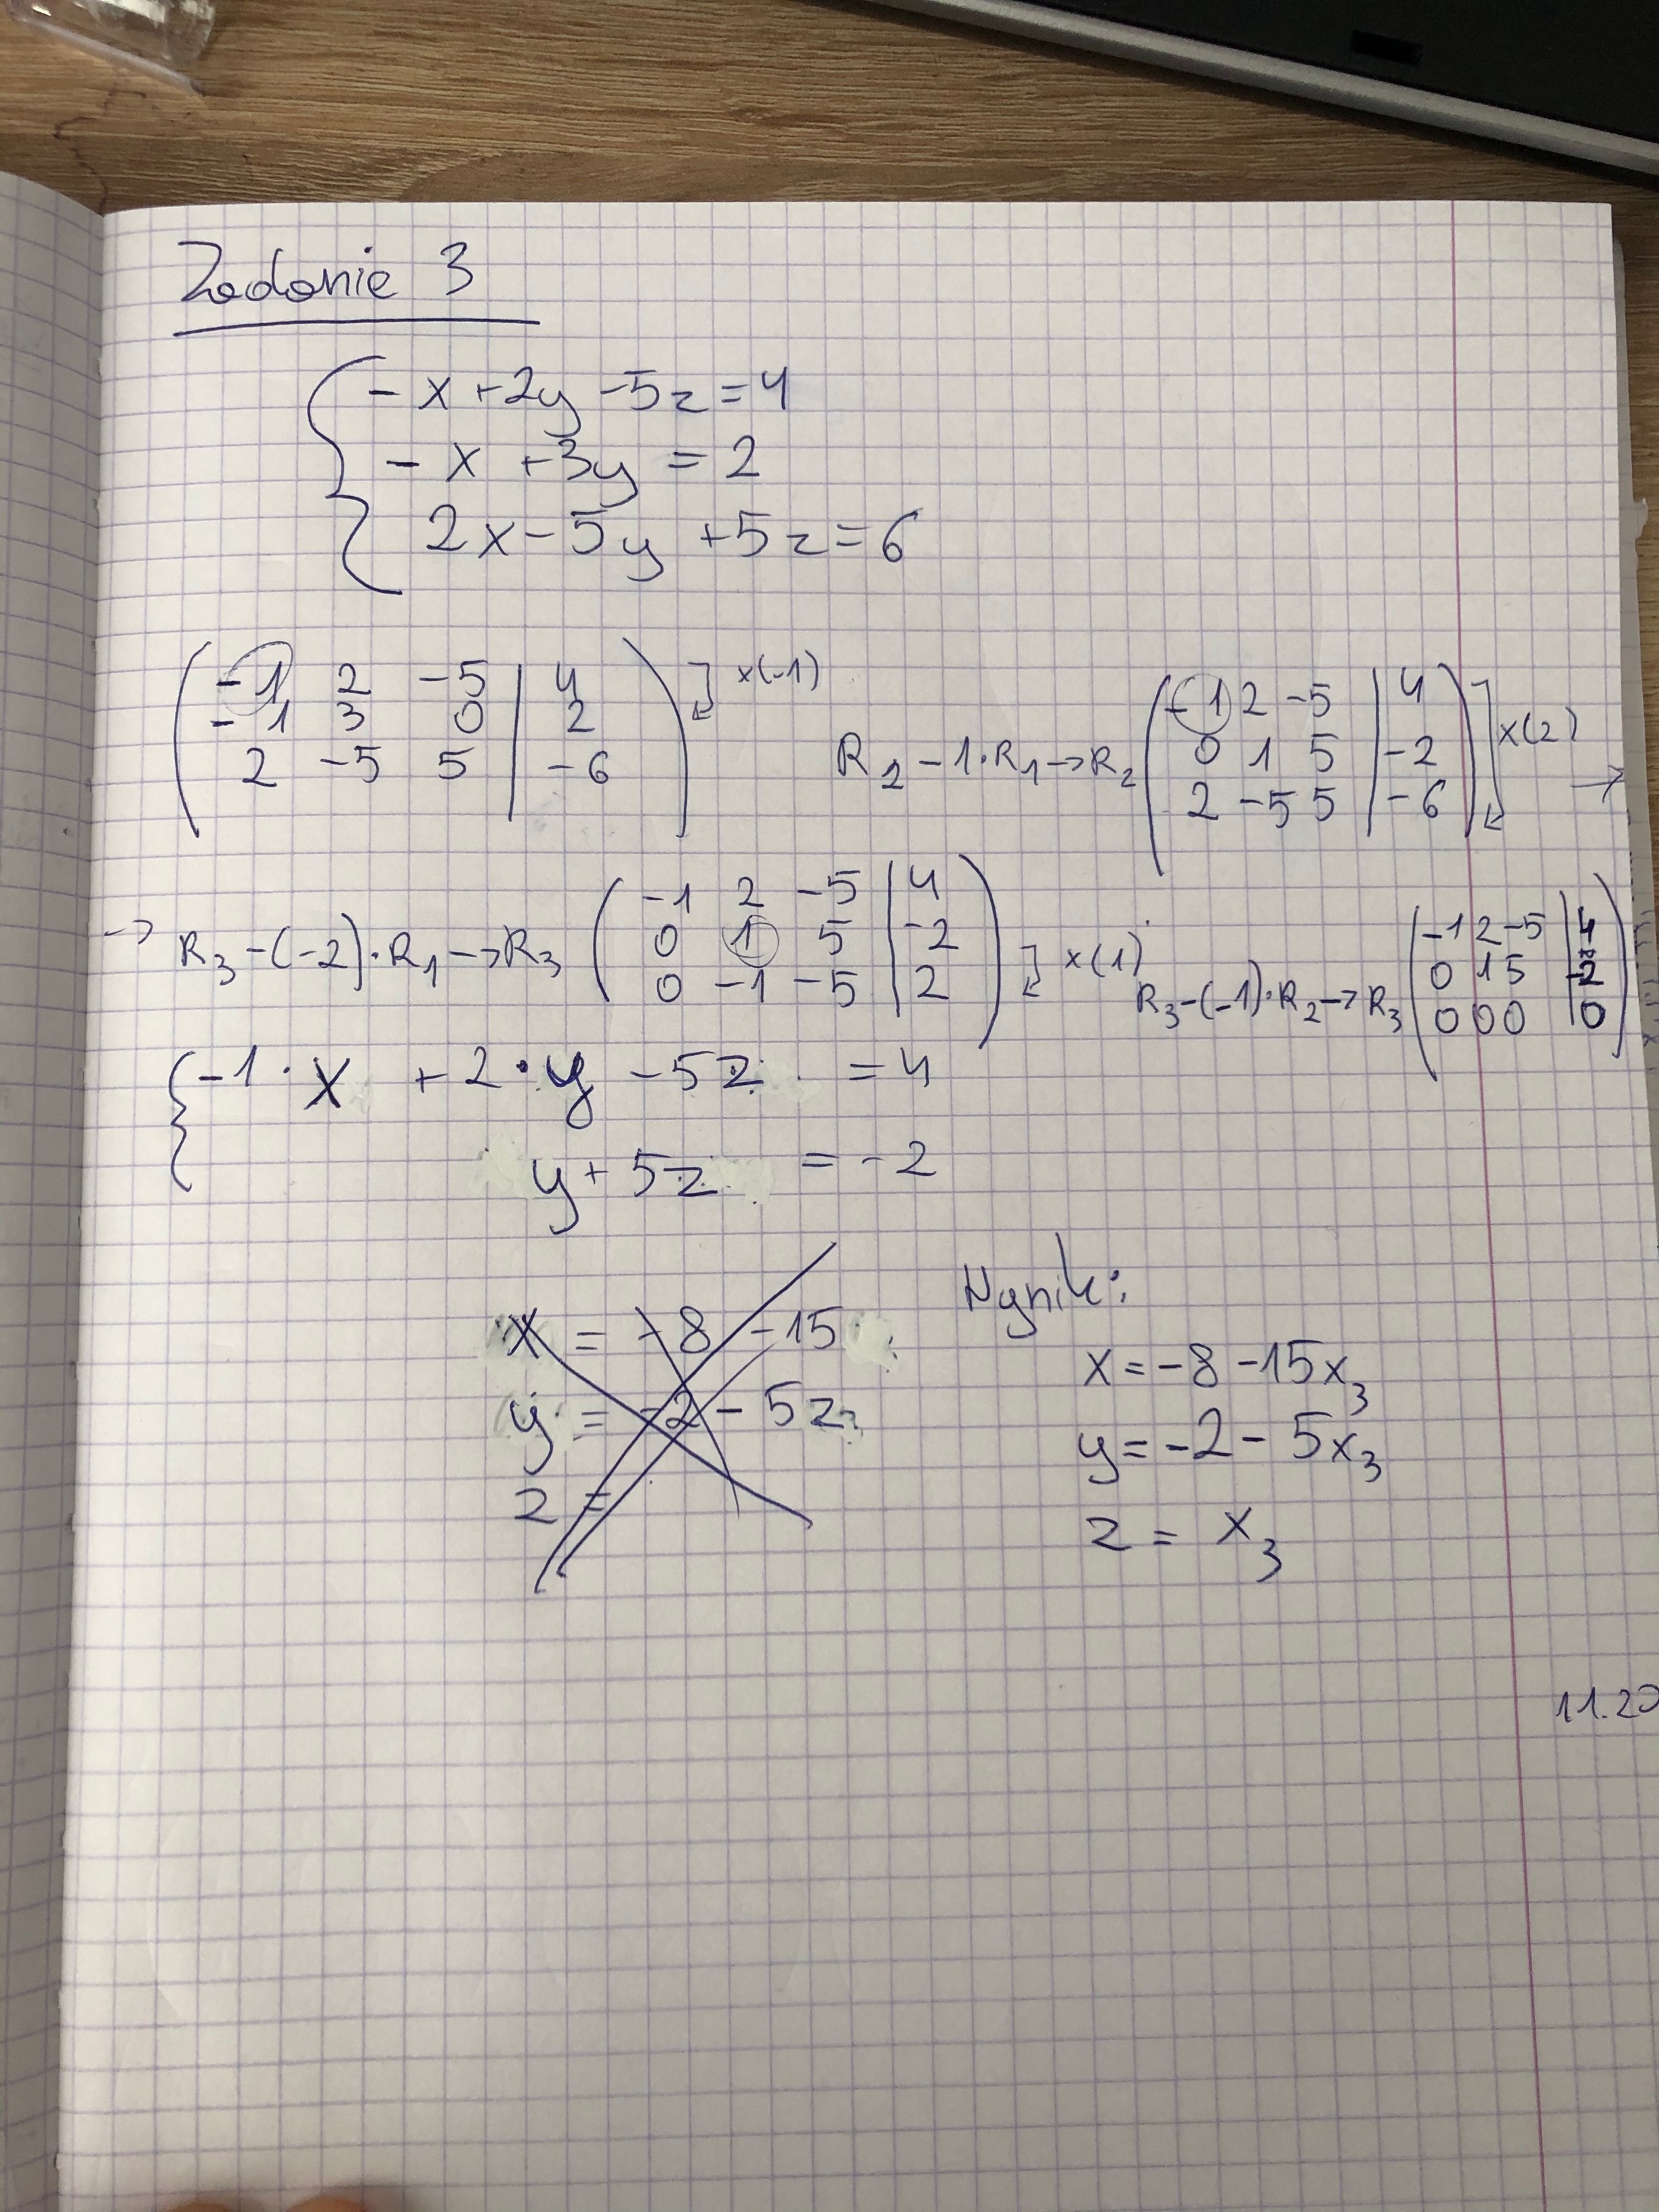 Zadanie 3
- x +2y -5z =4
- x +3y = 2
2x -5y +5z =6
-1 2 -5 | 4
-1 3 0 | 2
2 -5 5 | -6
x(-1)
R2 -1·R1 → R2
-1 2 -5 | 4
0 1 5 | -2
2 -5 5 | -6
x(2) →
→ R3 -(-2)·R1 → R3
-1 2 -5 | 4
0 1 5 | -2
0 -1 -5 | 2
x(1)
R3 -(-1)·R2 → R3
-1 2 -5 | 4
0 1 5 | -2
0 0 0 | 0
-1 · x + 2 · y - 5z = 4
y + 5z = -2
x = -8 -15
y = -2 - 5z
z =
Wynik:
x = -8 -15x3
y = -2 - 5x3
z = x3
11.20